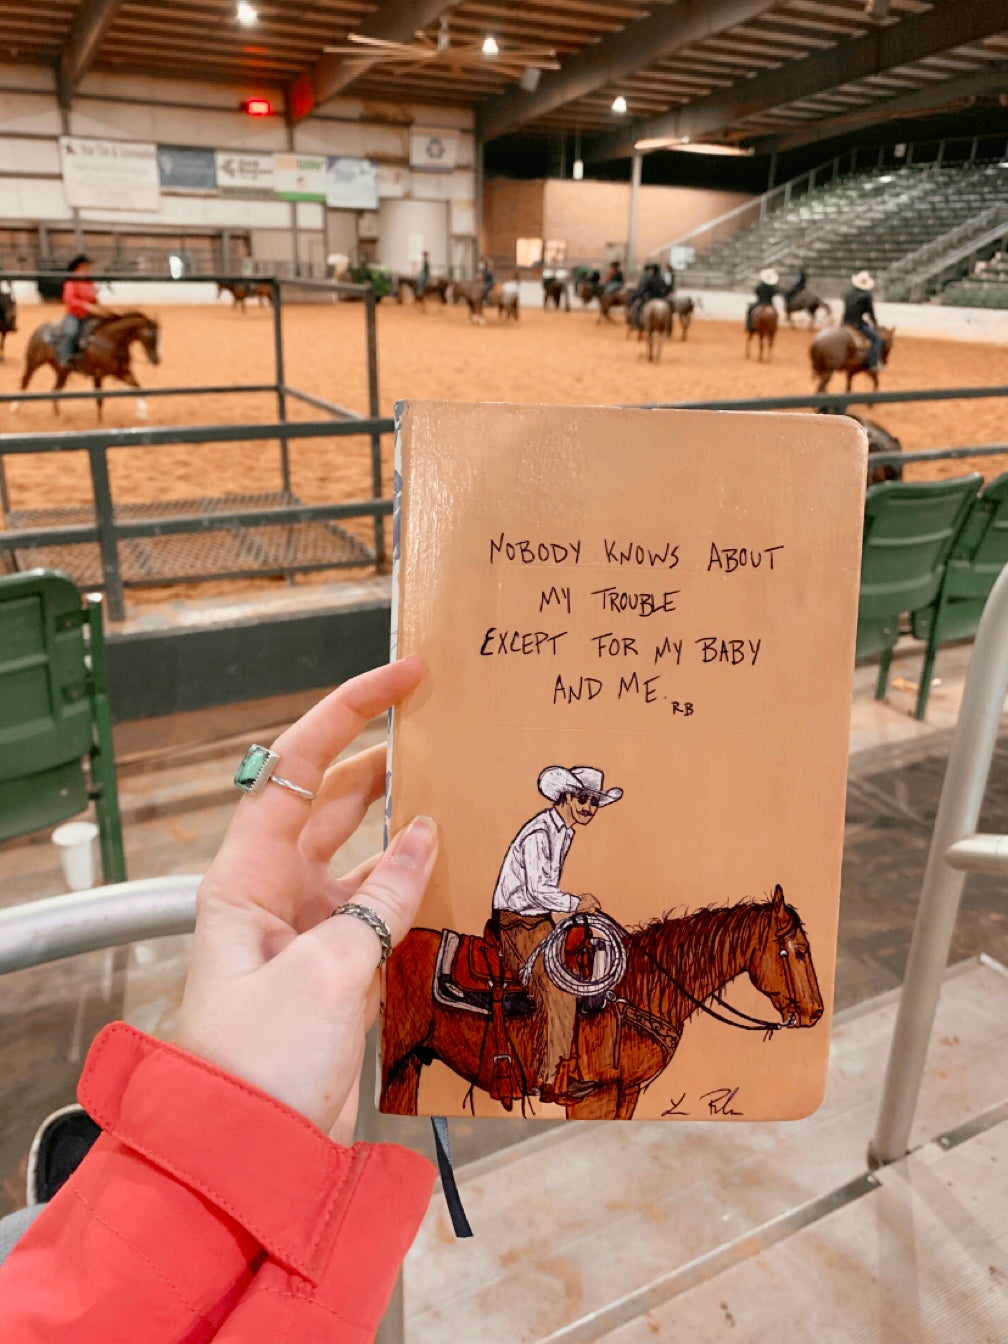 NOBODY KNOWS ABOUT
MY TROUBLE
EXCEPT FOR MY BABY
AND ME.
RB